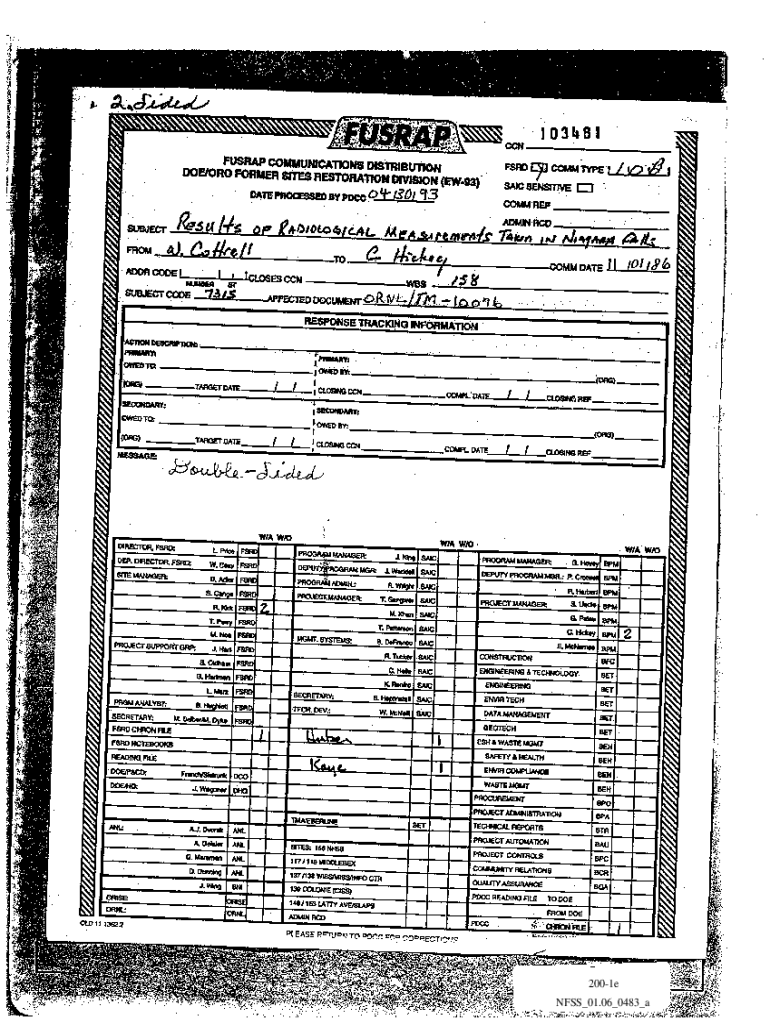 2. Sided
FUSRAP
CCN 103481
FUSRAP COMMUNICATIONS DISTRIBUTION
DOE/ORO FORMER SITES RESTORATION DIVISION (EW-93)
DATE PROCESSED BY PDCC 04/30/93
FSRD COMM TYPE:
SAIC SENSITIVE
COMM REF
ADMIN RCD
SUBJECT Results of Radiological Measurements Taken in Niagara Falls
FROM W. Cottrell TO C. Hickey COMM DATE 11/01/86
ADDR CODE CLOSES CCN WBS 158
NUMBER ST
SUBJECT CODE 7315 AFFECTED DOCUMENT ORNL/TM-10076
RESPONSE TRACKING INFORMATION
ACTION DESCRIPTION:
PRIMARY: PRIMARY:
OWED TO: OWED BY: (ORG)
(ORG) TARGET DATE / / CLOSING CCN COMPL. DATE / / CLOSING REF
SECONDARY: SECONDARY:
OWED TO: OWED BY: (ORG)
(ORG) TARGET DATE / / CLOSING CCN COMPL. DATE / / CLOSING REF
MESSAGE:
Double-Sided
W/A W/O
DIRECTOR, FSRD: L. Price FSRD
DEP. DIRECTOR, FSRD: W. Seay FSRD
SITE MANAGER: D. Adler FSRD
S. Cange FSRD
R. Kirk FSRD 2
T. Perry FSRD
M. Noe FSRD
PROJECT SUPPORT GRP: J. Hart FSRD
S. Oldham FSRD
G. Hartman FSRD
L. Marz FSRD
PRGM ANALYST: B. Hughlett FSRD
SECRETARY: M. Dyke FSRD
FSRD CHRON FILE 1
FSRD NOTEBOOKS
READING FILE
DOE/P&CD: DCO
DOE/HQ: J. Wagoner DHQ
ANL: A.J. Dvorak ANL
ANL
ANL
D. Dunning ANL
J. Wing BNI
ORISE: ORISE
ORNL: ORNL
W/A W/O
PROGRAM MANAGER: J. King SAIC
DEPUTY PROGRAM MGR: J. Waddell SAIC
PROGRAM ADMIN.: R. Wright SAIC
PROJECT MANAGER: SAIC
M. Khan SAIC
T. Patterson SAIC
MGMT. SYSTEMS: B. DeFranco SAIC
R. Tucker SAIC
SAIC
SAIC
SECRETARY: SAIC
TECH. DEV.: W. McNeill SAIC
Huber 1
Kaye 1
TMA/EBERLINE SET
SITES: 158 NFSS
117 / 118 MIDDLESEX
137 /138 WISS/MISS/INFO CTR
139 COLONIE (CISS)
148 / 153 LATTY AVE/SLAPS
ADMIN RCD
W/A W/O
PROGRAM MANAGER: G. Hovey BPM
DEPUTY PROGRAM MGR.: P. Crotwell BPM
R. Harbert BPM
PROJECT MANAGER: S. Liedle BPM
BPM
C. Hickey BPM 2
BPM
CONSTRUCTION BFC
ENGINEERING & TECHNOLOGY: BET
ENGINEERING BET
ENVIR TECH BET
DATA MANAGEMENT BET
GEOTECH BET
ESH & WASTE MGMT BEH
SAFETY & HEALTH BEH
ENVIR COMPLIANCE BEH
WASTE MGMT BEH
PROCUREMENT BPO
PROJECT ADMINISTRATION BPA
TECHNICAL REPORTS BTR
PROJECT AUTOMATION BAU
PROJECT CONTROLS BPC
COMMUNITY RELATIONS BCR
QUALITY ASSURANCE BQA
PDCC READING FILE TO DOE
FROM DOE
PDCC CHRON FILE 1
PLEASE RETURN TO PDCC FOR CORRECTIONS
200-1e
NFSS_01.06_0483_a